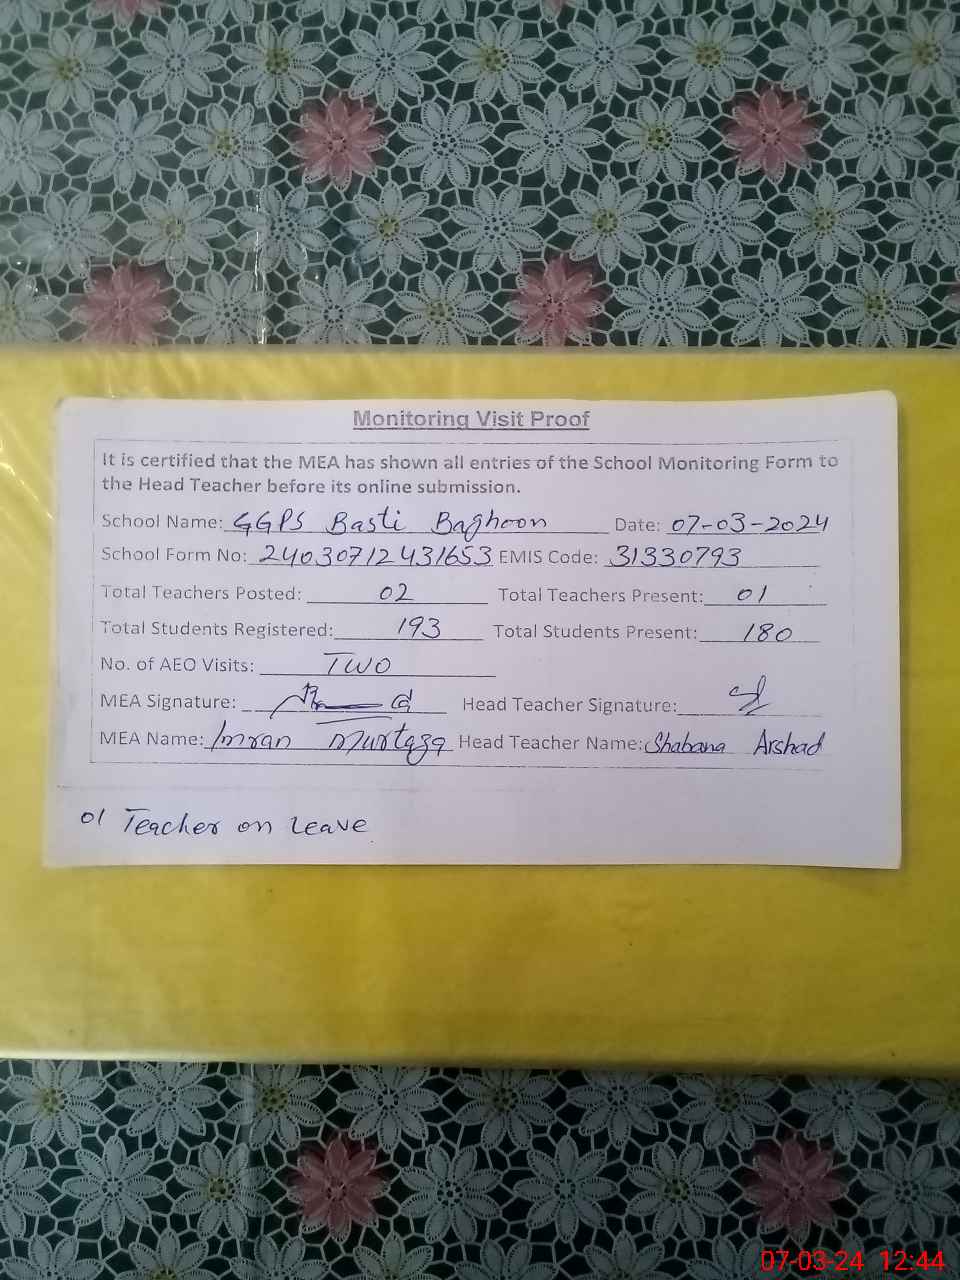 Monitoring Visit Proof
It is certified that the MEA has shown all entries of the School Monitoring Form to
the Head Teacher before its online submission.
School Name: GGPS Basti Baghoon Date: 07-03-2024
School Form No: 24030712431653 EMIS Code: 31330793
Total Teachers Posted: 02 Total Teachers Present: 01
Total Students Registered: 193 Total Students Present: 180
No. of AEO Visits: Two
MEA Signature: Head Teacher Signature:
MEA Name: Imran Murtaza Head Teacher Name: Shabana Arshad
01 Teacher on Leave
07-03-24 12:44